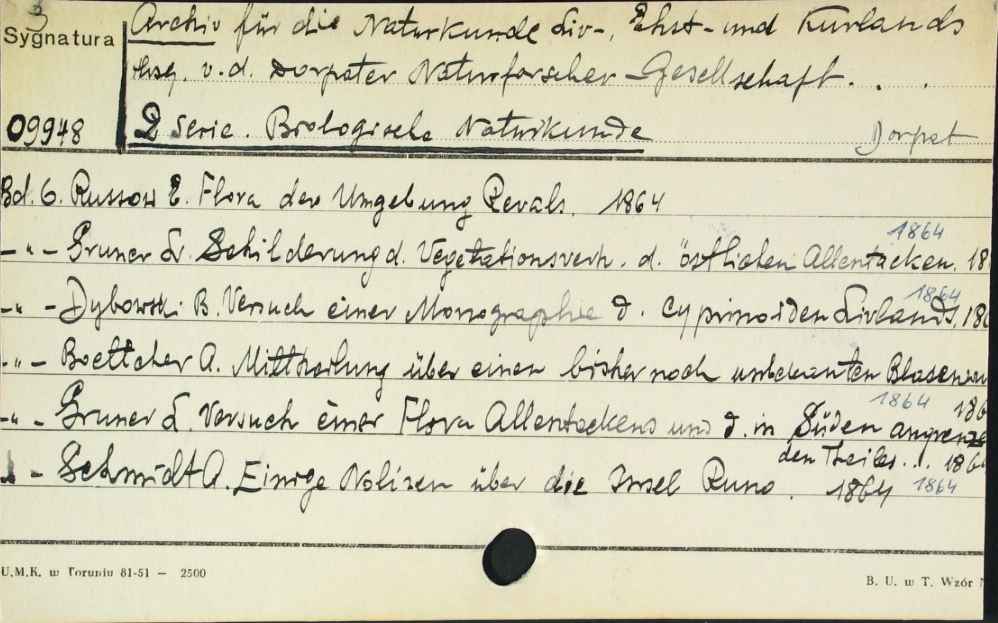 3
Sygnatura
Archiv für die Naturkunde Liv-, Ehst- und Kurlands
hsg. v. d. Dorpater Naturforscher-Gesellschaft . . .
09948 2 Serie. Biologische Naturkunde Dorpat
Bd. 6. Russow E. Flora der Umgebung Revals. 1864
1864
-"- Gruner L. Schilderung d. Vegetationsverh. d. östlichen Allentacken. 18
1864
-"- Dybowski B. Versuch einer Monographie d. Cyprinoiden Livlands, 186
-"- Boettcher A. Mittheilung über einen bisher noch unbekannten Blasenwu
1864 186
-"- Gruner L. Versuch einer Flora Allentackens und d. in Süden angrenzen
den Theiles... 186
- Schmidt A. Einige Notizen über die Insel Runo. 1864 1864
U.M.K. w Toruniu 81-51 — 2500
B. U. w T. Wzór